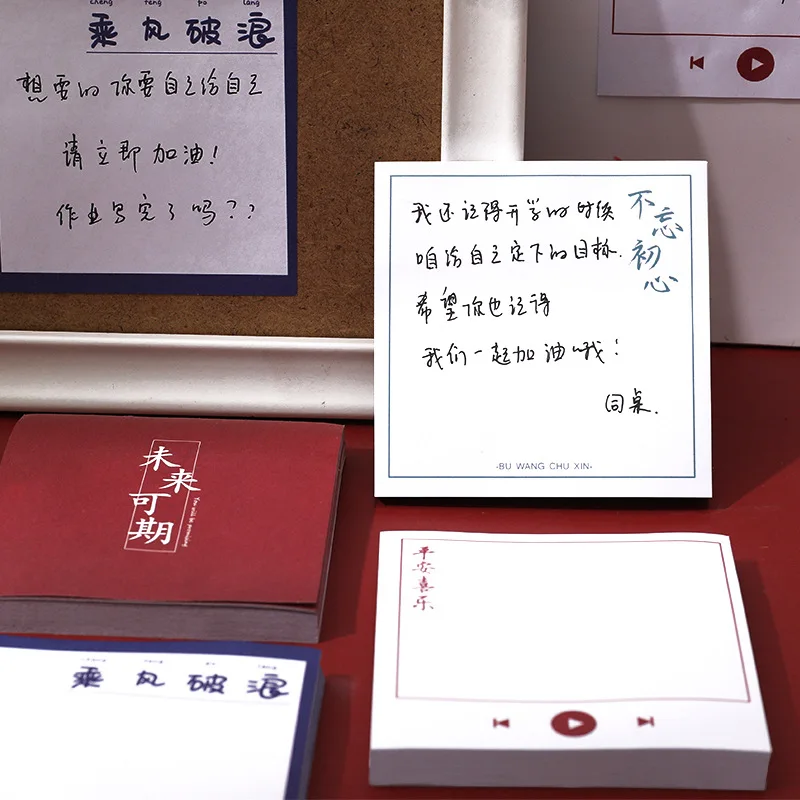 cheng feng po lang
乘风破浪
想要的你要自己给自己
请立即加油!
作业写完了吗??
不忘初心
我还记得开学的时候
咱给自己定下的目标.
希望你也记得
我们一起加油哦!
同桌.
-BU WANG CHU XIN-
未来
可期
平安喜乐
乘风破浪